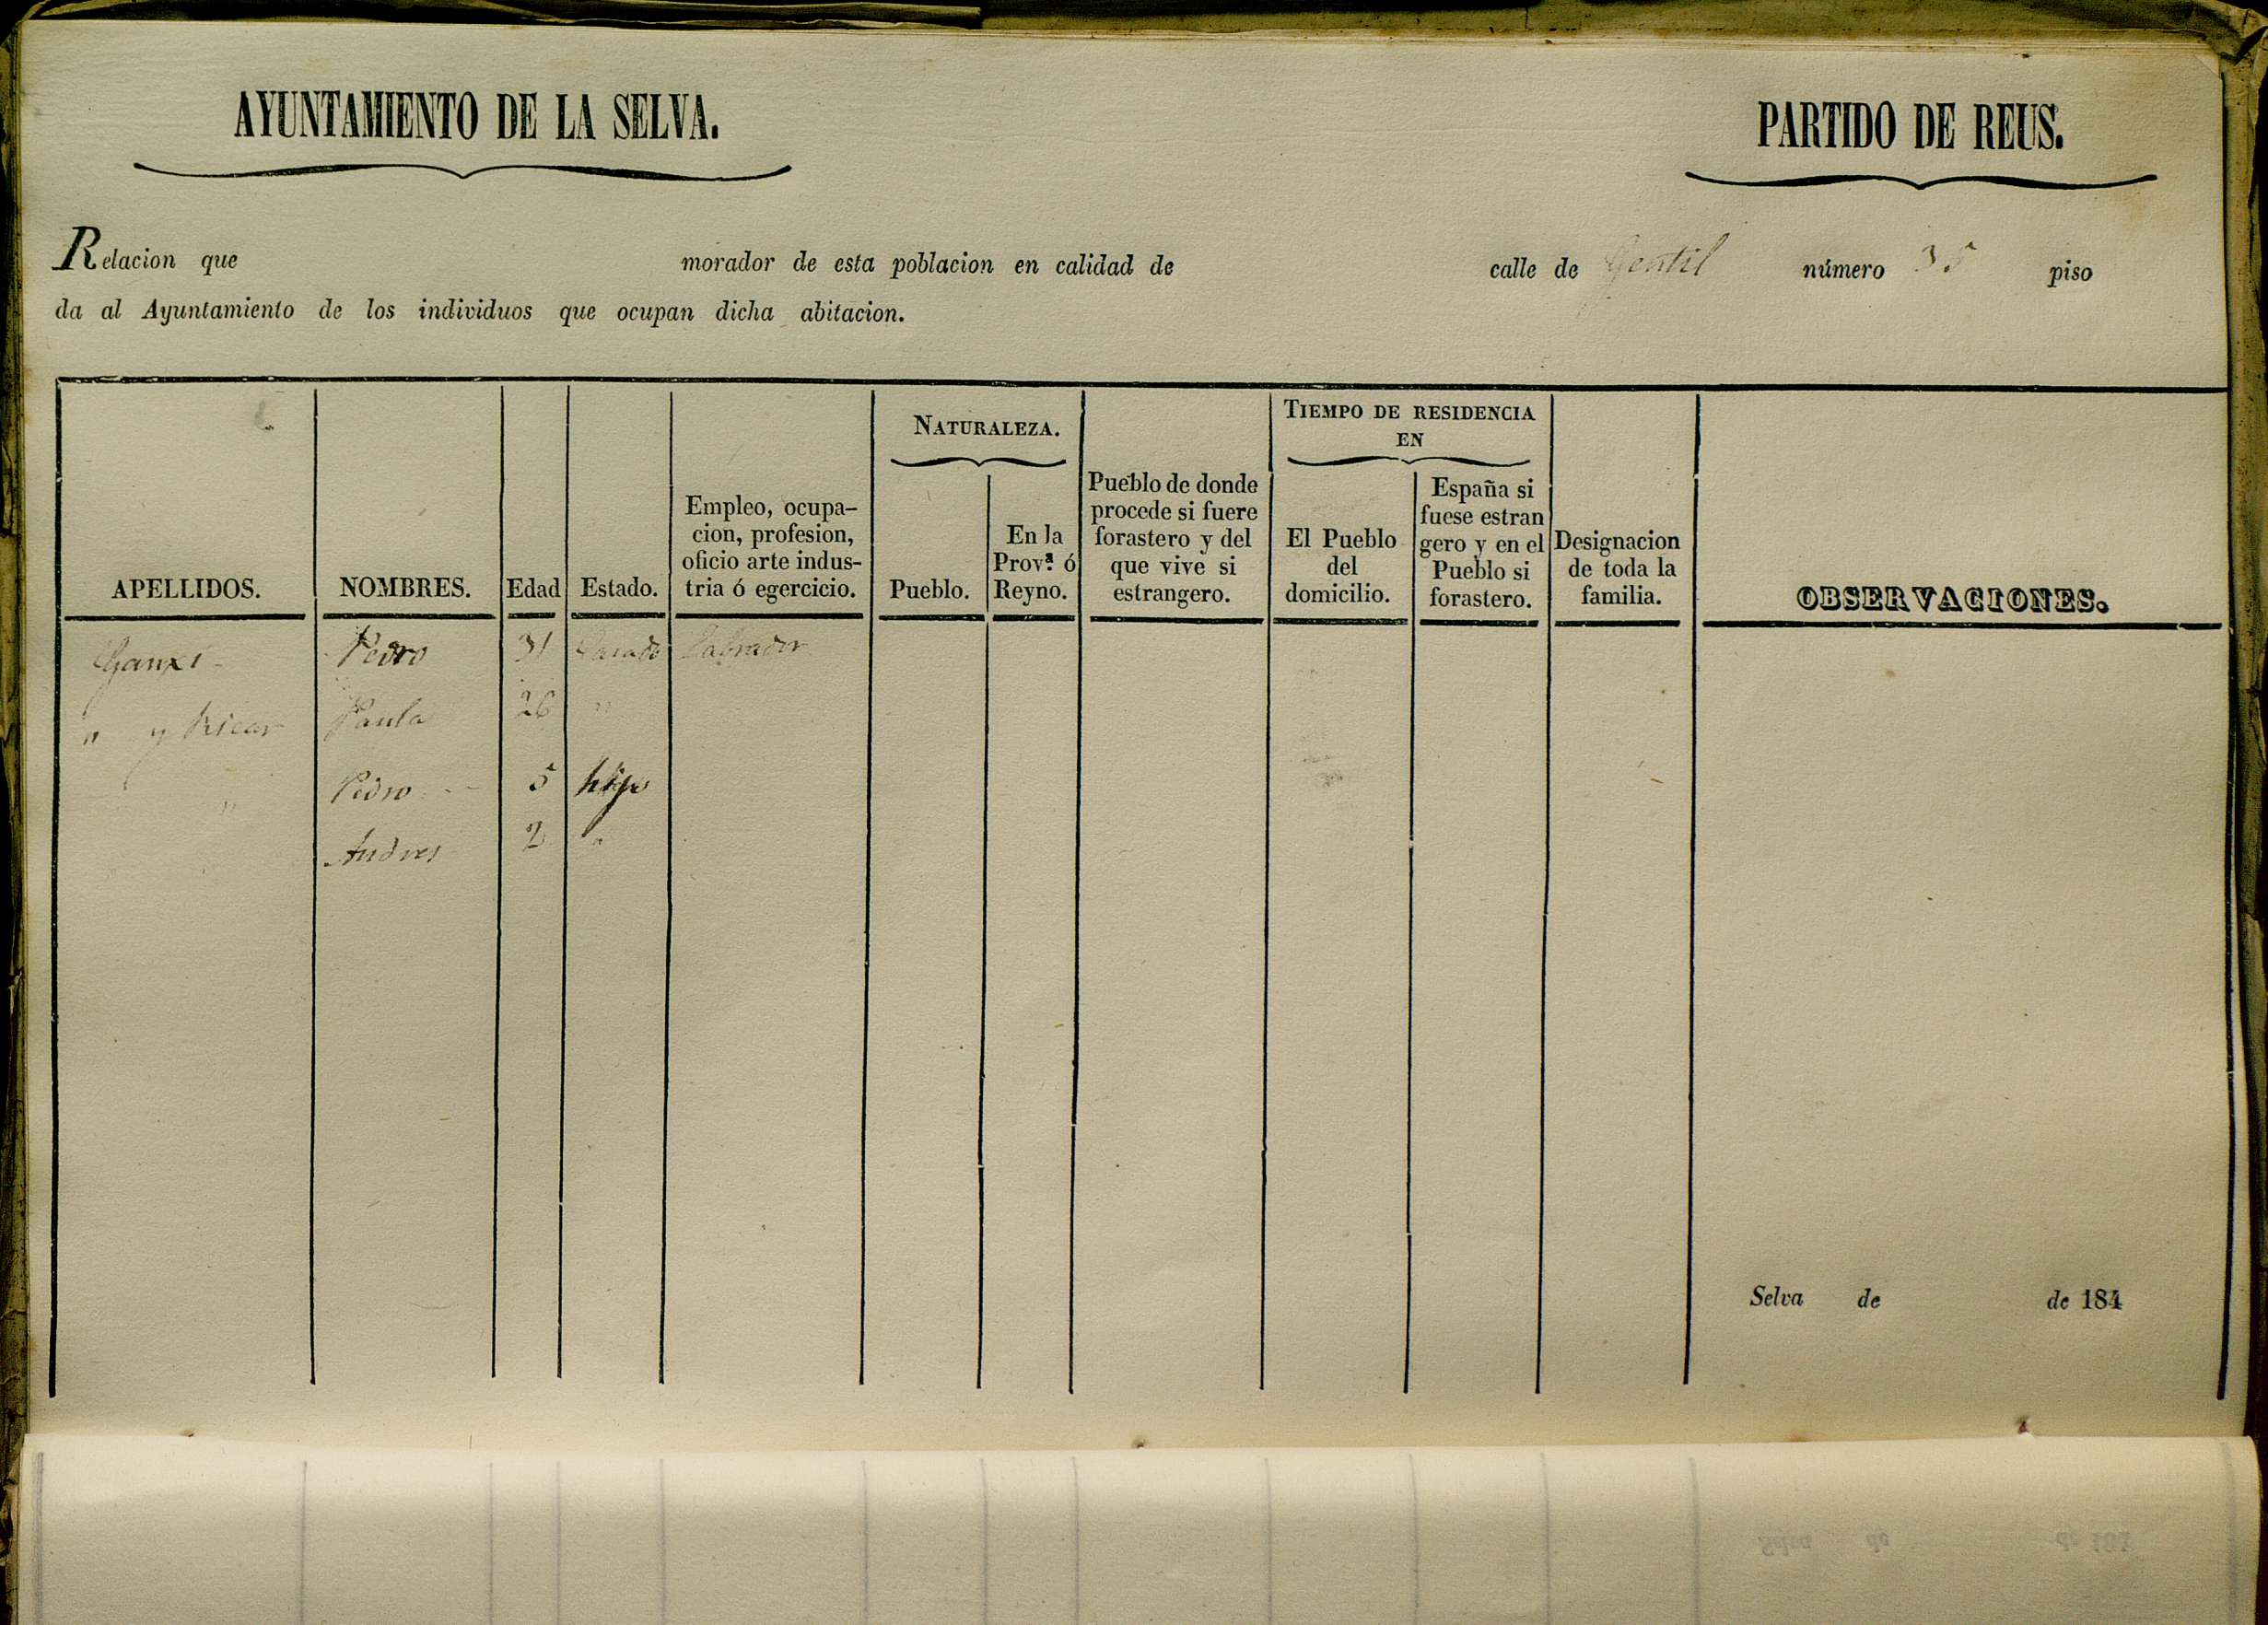 AYUNTAMIENTO DE LA SELVA.
PARTIDO DE REUS.
Relacion que morador de esta poblacion en calidad de calle de Gentil número 35 piso
da al Ayuntamiento de los individuos que ocupan dicha abitacion.
APELLIDOS.
NOMBRES.
Edad
Estado.
Empleo, ocupa-
cion, profesion,
oficio arte indus-
tria ó egercicio.
NATURALEZA.
Pueblo.
En la
Prov.ª ó
Reyno.
Pueblo de donde
procede si fuere
forastero y del
que vive si
estrangero.
TIEMPO DE RESIDENCIA
EN
El Pueblo
del
domicilio.
España si
fuese estran
gero y en el
Pueblo si
forastero.
Designacion
de toda la
familia.
OBSERVACIONES.
Ganxi Pedro 31 Casado Labrador
" y Paula 26 "
" Pedro 5 hijo
Andres 2 "
Selva de de 184